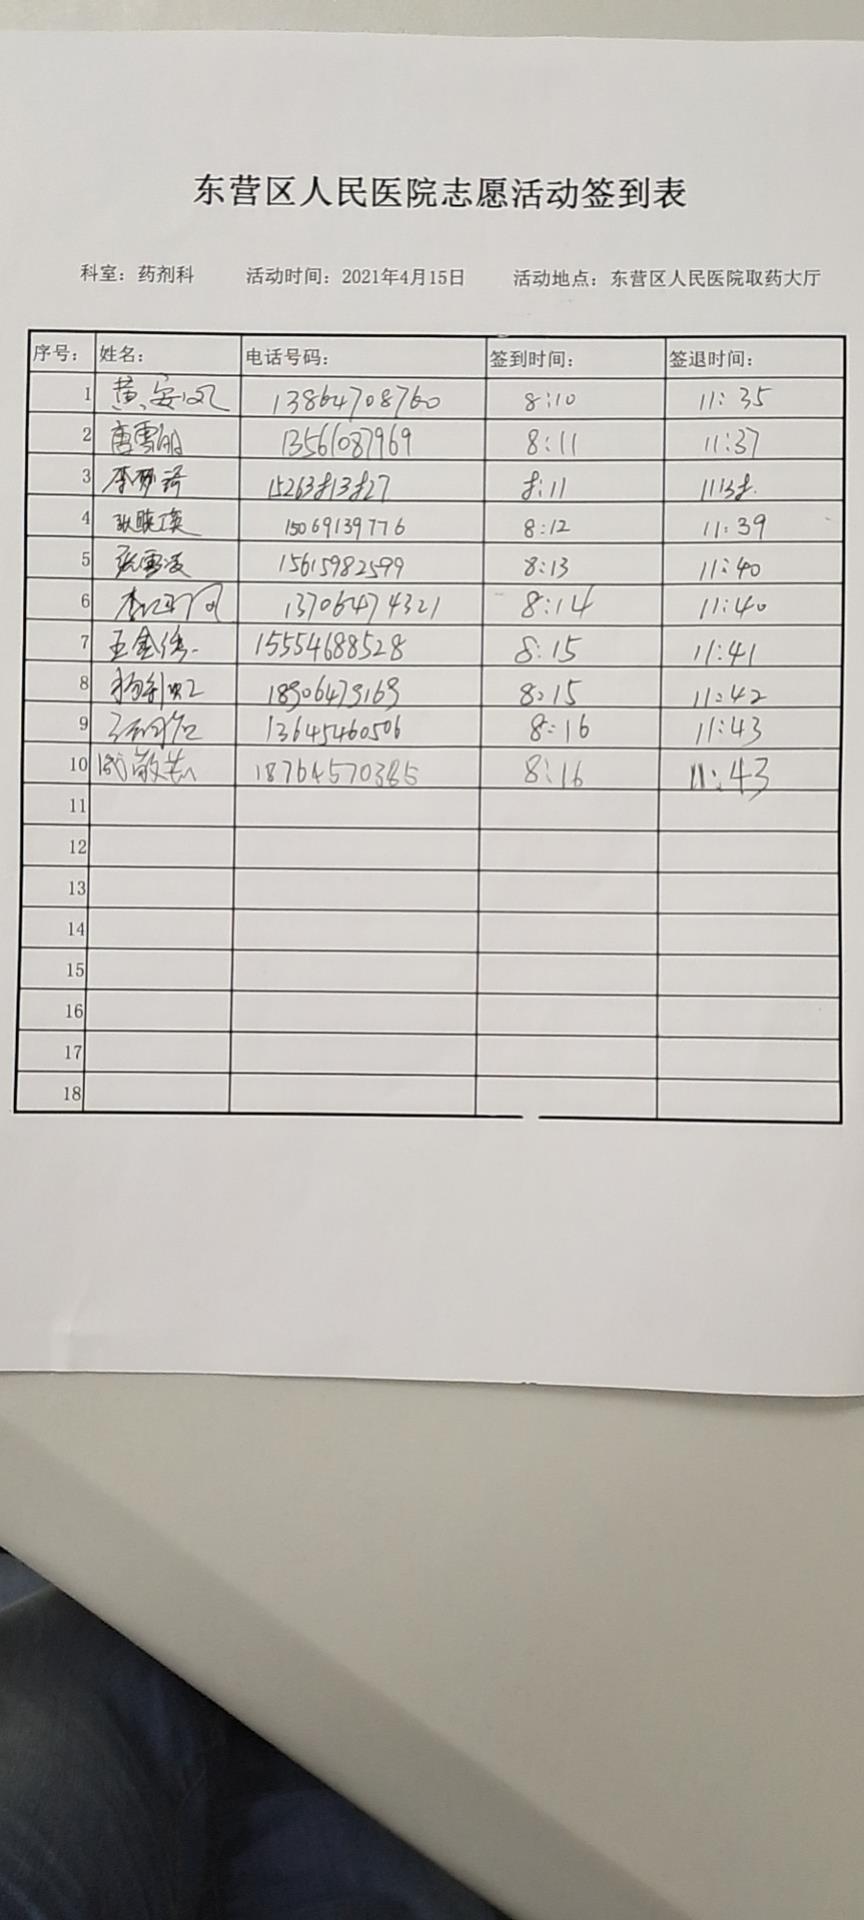 东营区人民医院志愿活动签到表
科室：药剂科 活动时间：2021年4月15日 活动地点：东营区人民医院取药大厅
序号： 姓名： 电话号码： 签到时间： 签退时间：
1 黄安 13864708760 8:10 11:35
2 唐雪明 13561087969 8:11 11:37
3 李梦 15263813827 8:11 11:38
4 张晓 15069139776 8:12 11:39
5 张雪凌 15615982599 8:13 11:40
6 李 13706474321 8:14 11:40
7 王金 15554688528 8:15 11:41
8 杨 8:15 11:42
9 13645460506 8:16 11:43
10 敬 18764570385 8:16 11:43
11
12
13
14
15
16
17
18